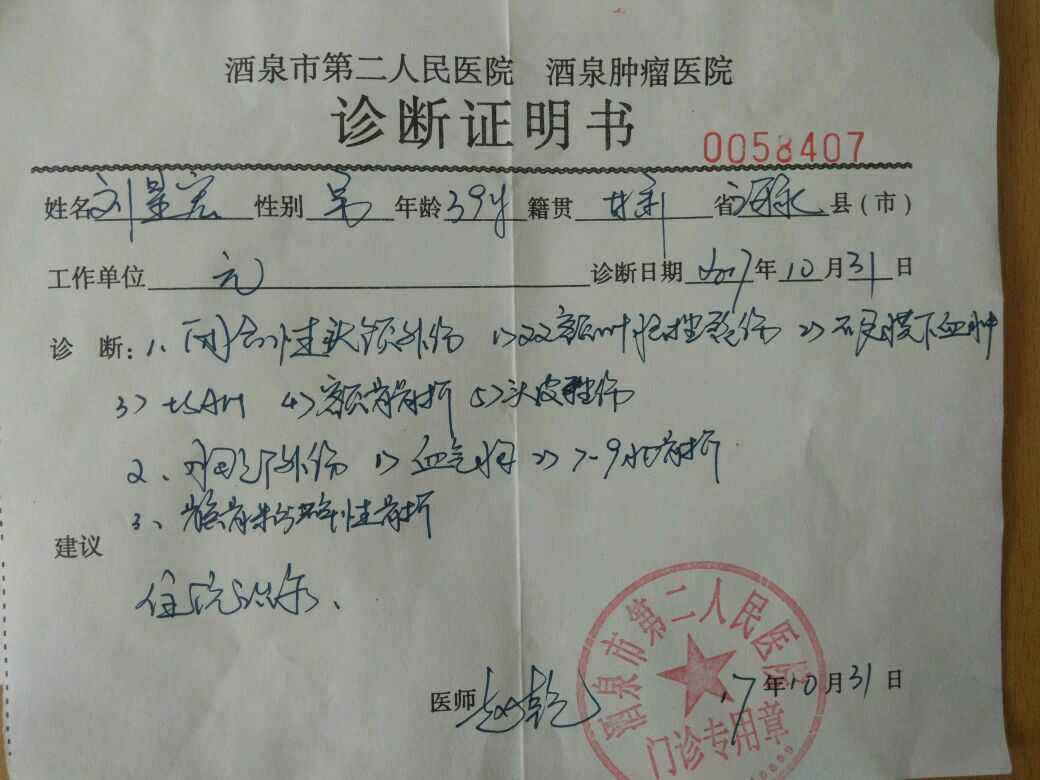 酒泉市第二人民医院 酒泉肿瘤医院
诊断证明书
0058407
姓名 刘景宏 性别 男 年龄 39岁 籍贯 甘肃 省 酒泉 县(市)
工作单位 无 诊断日期 2017年10月31日
诊 断: 1、闭合性颅脑外伤 1>双额叶脑挫裂伤 2>硬膜下血肿
3> tSAH 4>额骨骨折 5>头皮挫伤
2、胸部外伤 1>血气胸 2>7-9肋骨折
3、髌骨粉碎性骨折
建议
住院治疗、
医师 17年10月31日
酒泉市第二人民医院
门诊专用章